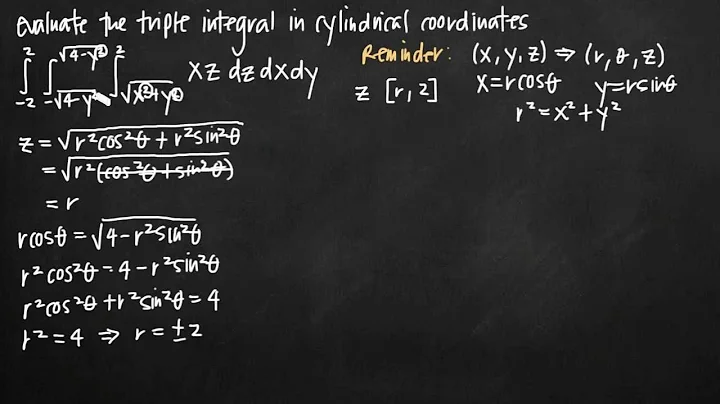 evaluate the triple integral in cylindrical coordinates
∫_{-2}^{2} ∫_{-√(4-y²)}^{√(4-y²)} ∫_{√(x²+y²)}^{2} xz dz dx dy
Reminder: (x, y, z) ⇒ (r, θ, z)
x=rcosθ y=rsinθ
r²=x²+y²
z [r, 2]
z = √(r²cos²θ + r²sin²θ)
= √(r²(cos²θ+sin²θ))
= r
rcosθ = √(4-r²sin²θ)
r²cos²θ = 4 - r²sin²θ
r²cos²θ + r²sin²θ = 4
r² = 4 ⇒ r = ±2